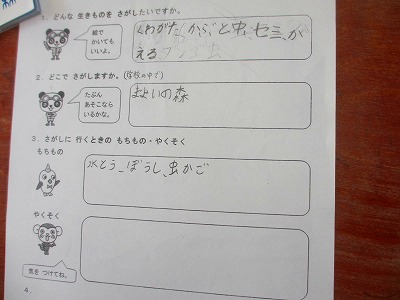 1. どんな 生きものを さがしたいですか。
絵で
かいても
いいよ。
くわがた、かぶと虫、セミ、か
える
2. どこで さがしますか。(学校の中で)
たぶん
あそこなら
いるかな。
まよいの森
3. さがしに 行くときの もちもの・やくそく
もちもの
水とう、ぼうし、虫かご
やくそく
気を つけてね。
4.